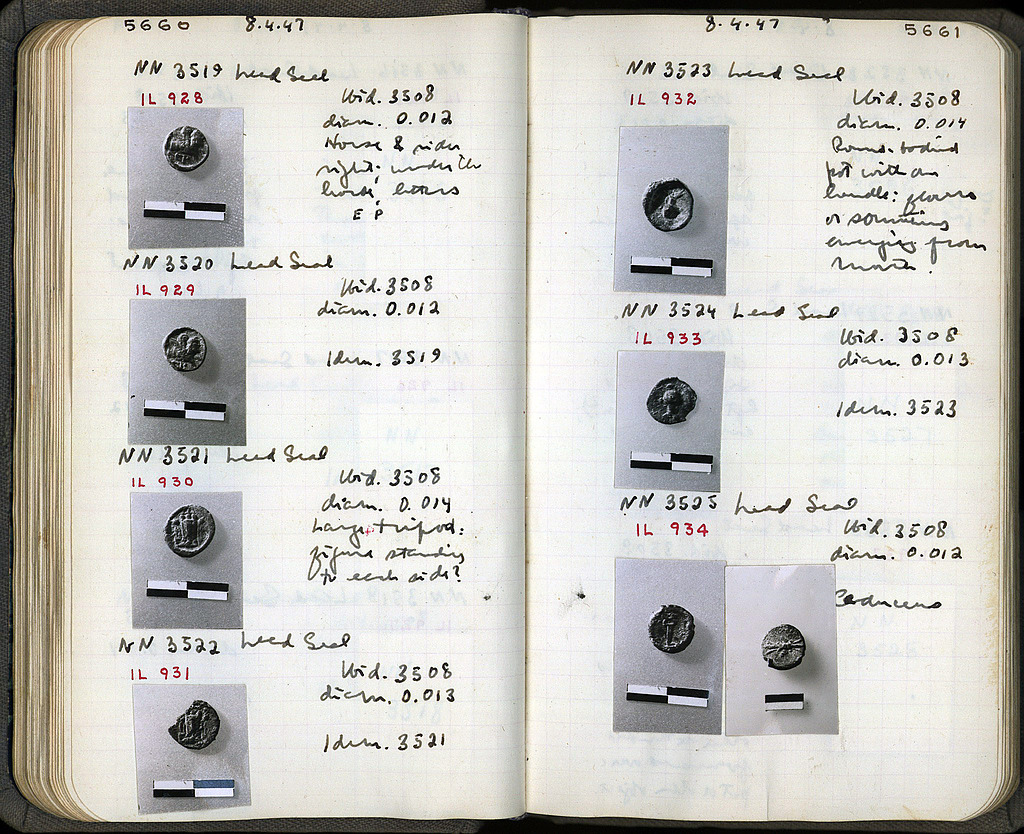 5660 8.4.47
NN 3519 Lead Seal
IL 928 Ibid. 3508
diam. 0.012
Horse & rider
right; under the
horse, letters
E P
NN 3520 Lead Seal
IL 929 Ibid. 3508
diam. 0.012
Idem. 3519
NN 3521 Lead Seal
IL 930 Ibid. 3508
diam. 0.014
Large tripod:
figure standing
to each side?
NN 3522 Lead Seal
IL 931 Ibid. 3508
diam. 0.013
Idem. 3521
8.4.47 5661
NN 3523 Lead Seal
IL 932 Ibid. 3508
diam. 0.014
Round-bodied
pot with one
handle: flowers
or something
emerging from
mouth.
NN 3524 Lead Seal
IL 933 Ibid. 3508
diam. 0.013
Idem. 3523
NN 3525 Lead Seal
IL 934 Ibid. 3508
diam. 0.012
Caduceus